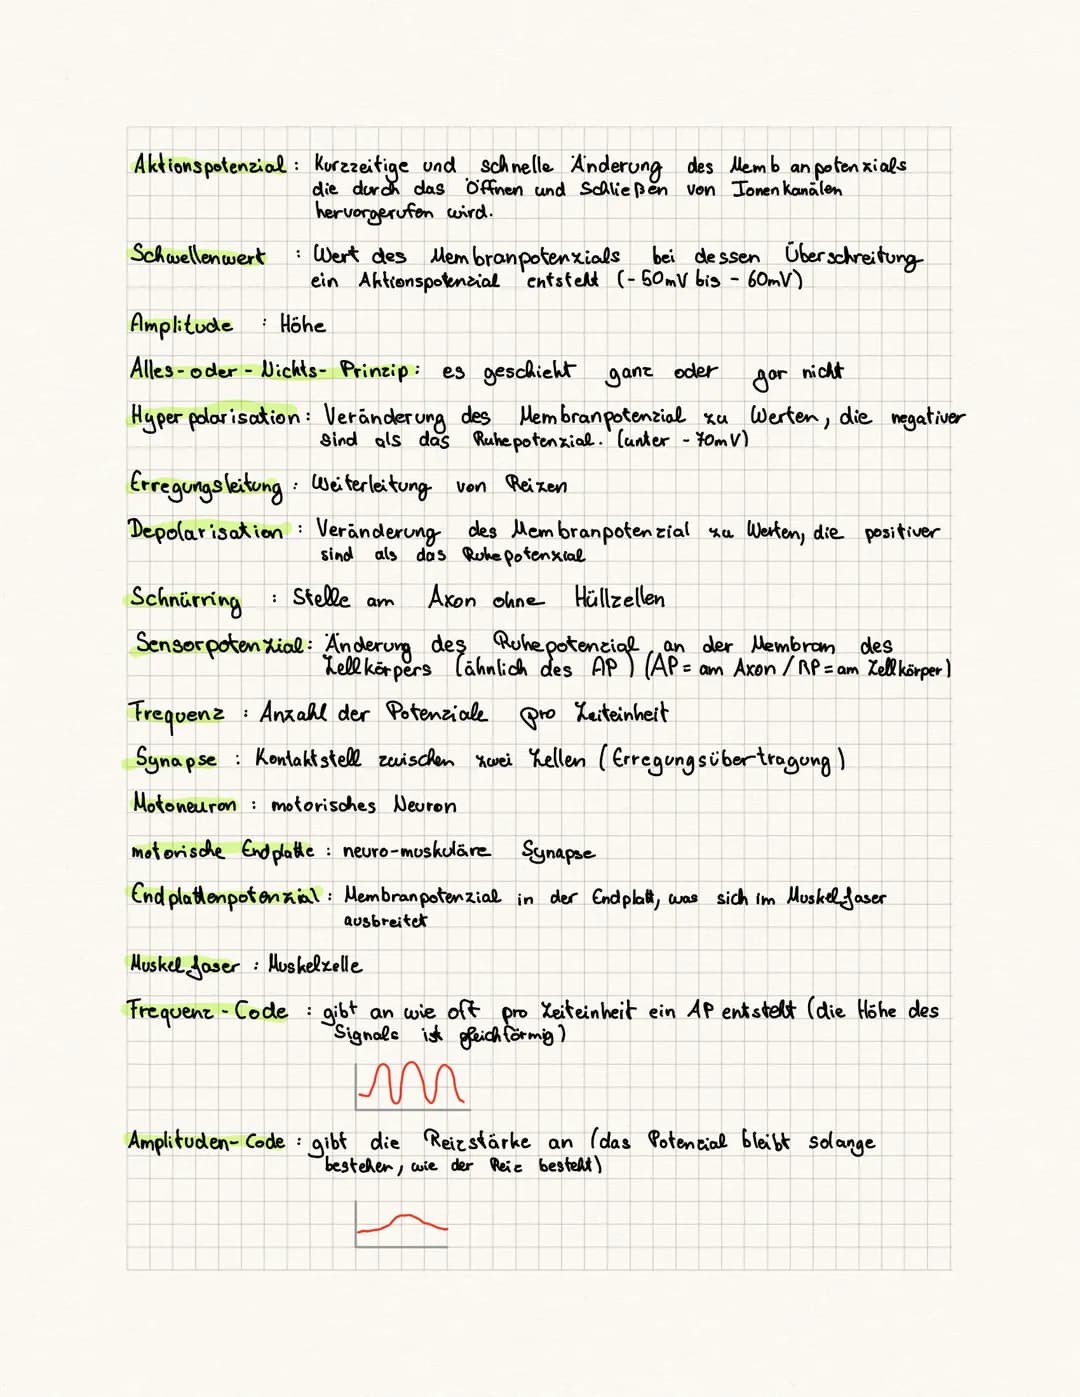 Aktionspotenzial : Kurzzeitige und schnelle Änderung des Memb anpotenzials
die durch das Öffnen und Schließen von Ionenkanälen
hervorgerufen wird.
Schwellenwert : Wert des Membranpotenzials bei dessen Überschreitung
ein Aktionspotenzial entsteht (-50mV bis - 60mV)
Amplitude : Höhe
Alles-oder-Nichts-Prinzip : es geschieht ganz oder gar nicht
Hyperpolarisation : Veränderung des Membranpotenzial zu Werten, die negativer
sind als das Ruhepotenzial. (unter - 70mV)
Erregungsleitung : Weiterleitung von Reizen
Depolarisation : Veränderung des Membranpotenzial zu Werten, die positiver
sind als das Ruhepotenzial
Schnürring : Stelle am Axon ohne Hüllzellen
Sensorpotenzial : Änderung des Ruhepotenzial an der Membran des
Zellkörpers (ähnlich des AP) (AP = am Axon / RP = am Zellkörper)
Frequenz : Anzahl der Potenziale pro Zeiteinheit
Synapse : Kontaktstell zwischen zwei Zellen (Erregungsübertragung)
Motoneuron : motorisches Neuron
motorische Endplatte : neuro-muskuläre Synapse
Endplattenpotenzial : Membranpotenzial in der Endplatt, was sich im Muskelfaser
ausbreitet
Muskelfaser : Muskelzelle
Frequenz-Code : gibt an wie oft pro Zeiteinheit ein AP entsteht (die Höhe des
Signals ist gleichförmig)
Amplituden-Code : gibt die Reizstärke an (das Potenzial bleibt solange
bestehen, wie der Reiz besteht)